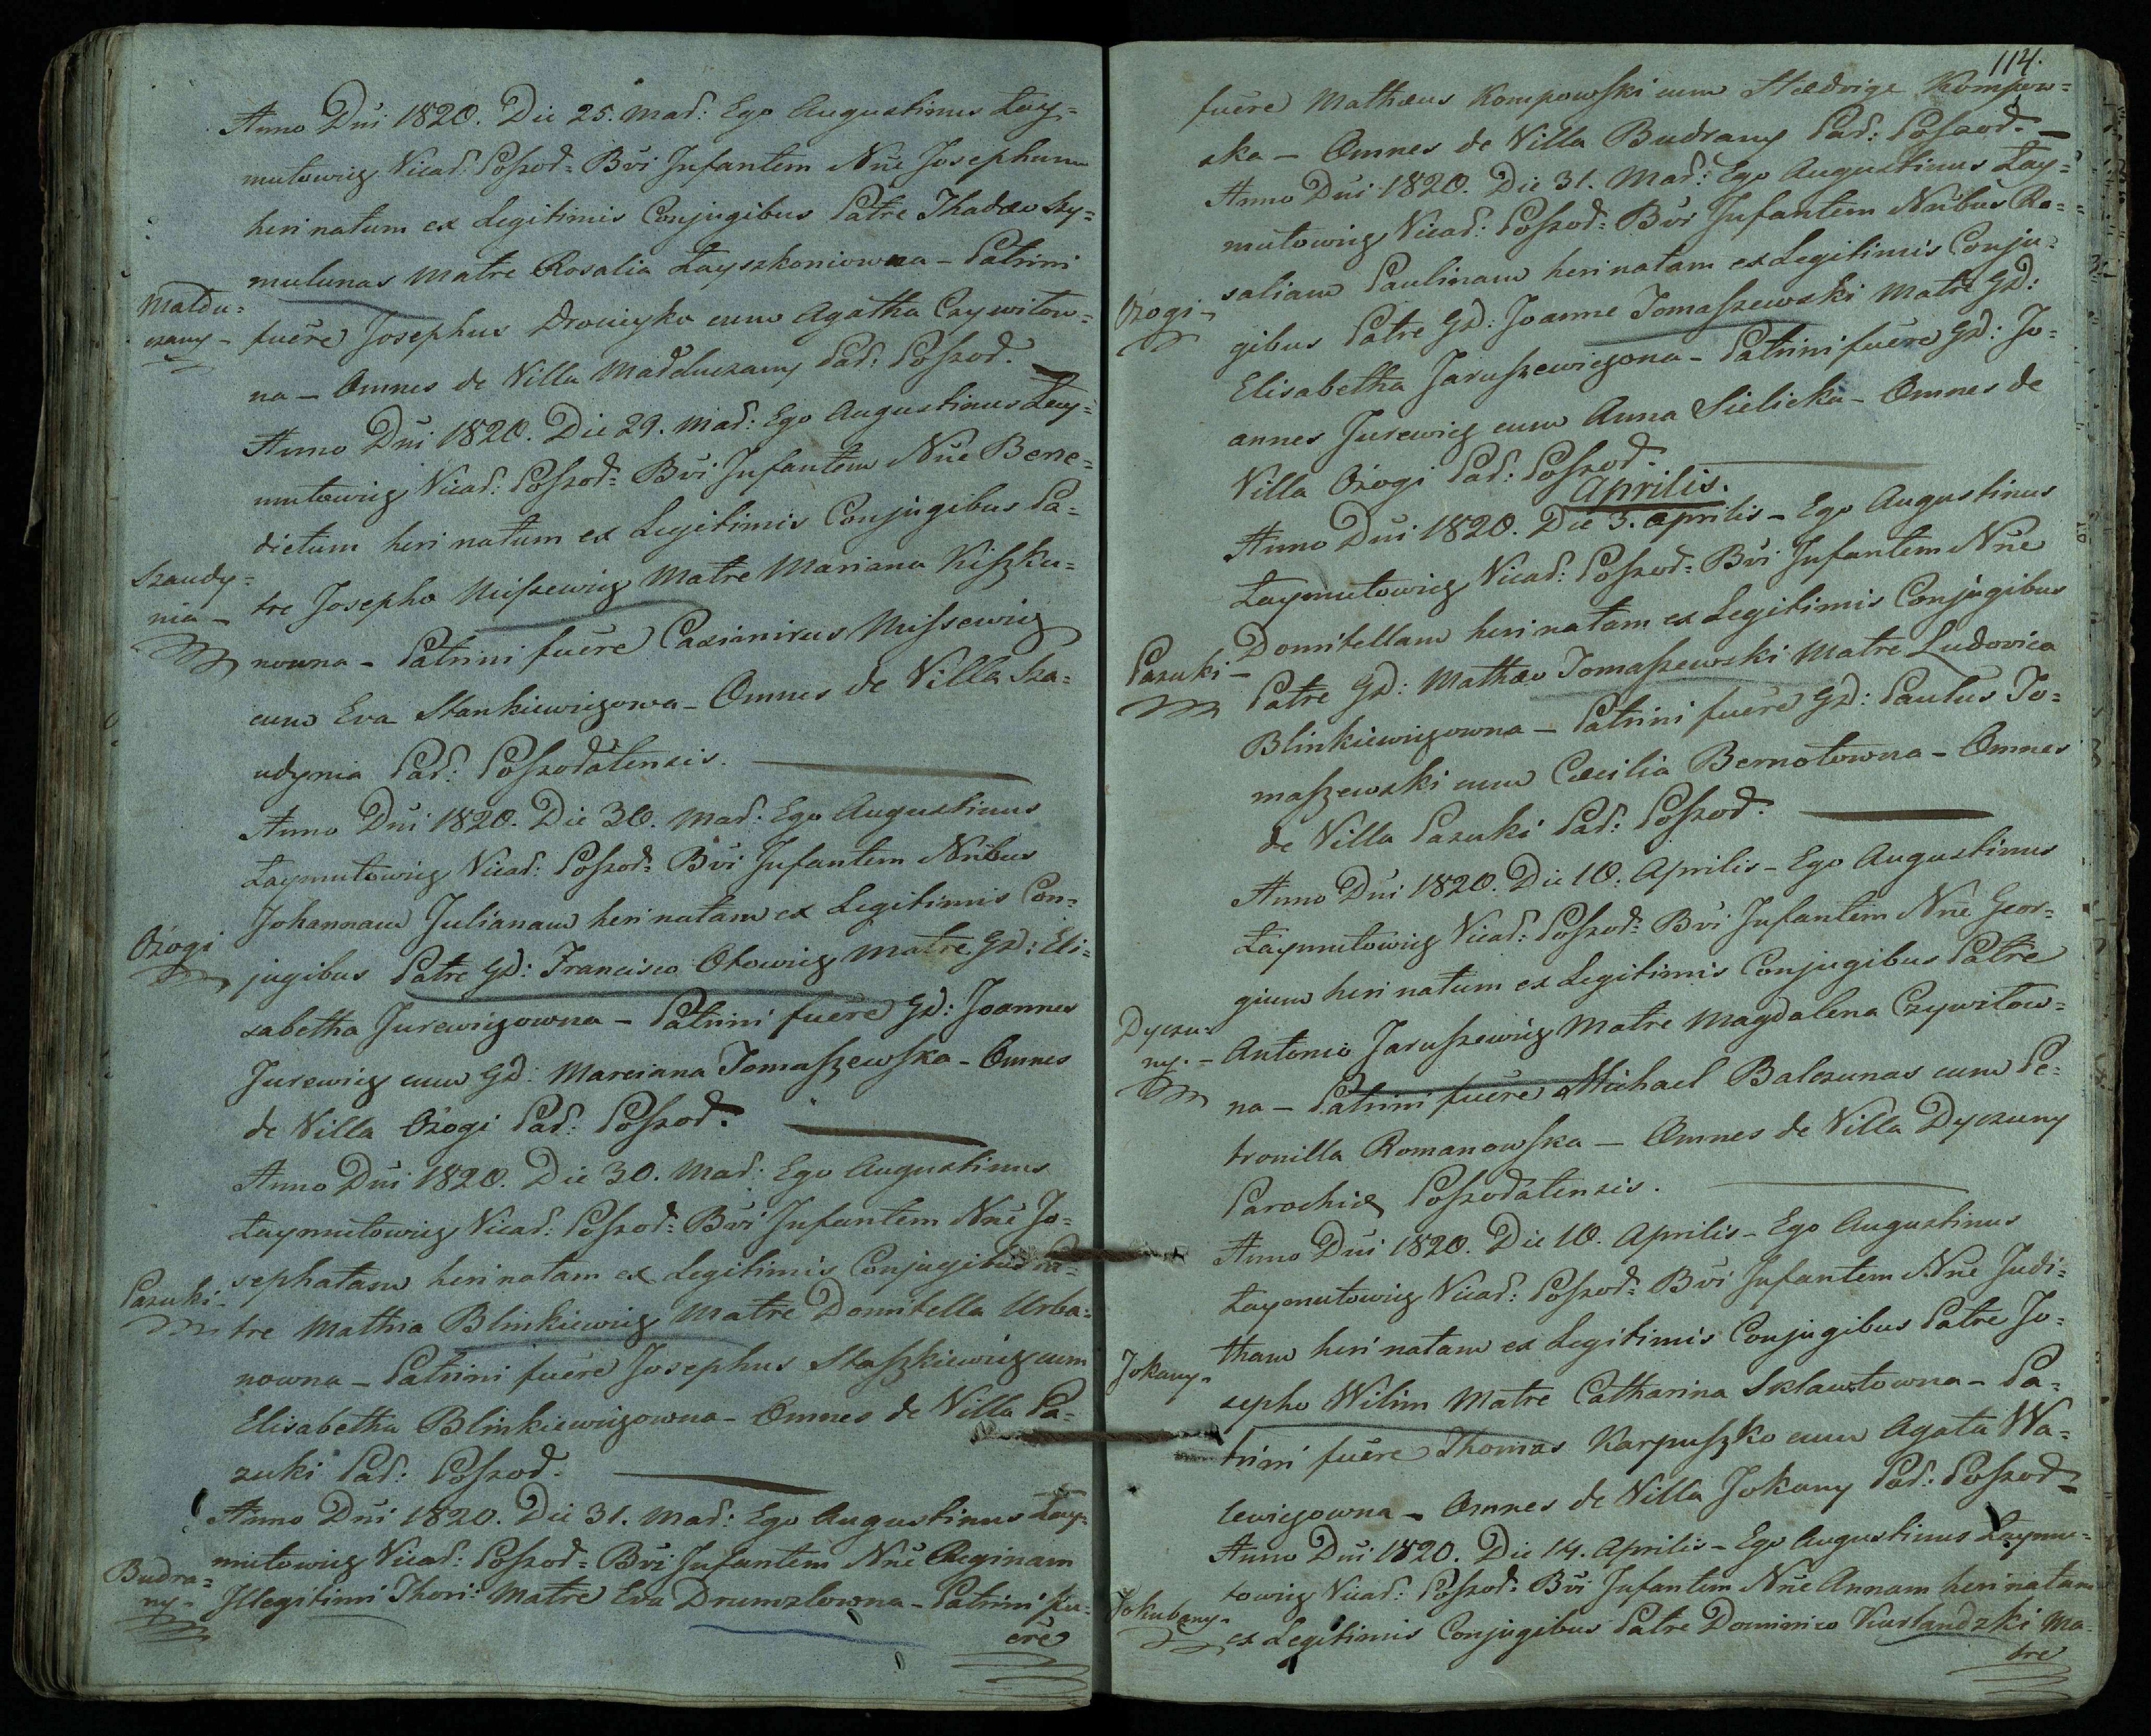 Anno Dñi 1820. Die 25. Mad: Ego Augustinus Łay=
mutowicz Vicad: Poszod= Bvi Infantem Nñe Josephum
heri natum ex Legitimis Conjugibus Patre Thadæo Szy=
mulunas Matre Rosalia Łayszkoniowna – Patrini
Maldu=
czany –
fuere Josephus Drocieyko cum Agatha Czywitow=
na – Omnes de Villa Małduczany Pad: Poszod.
Anno Dñi 1820. Die 29. Mad: Ego Augustinus Łay=
mutowicz Vicad: Poszod= Bvi Infantem Nñe Bene=
dictum heri natum ex Legitimis Conjugibus Pa=
Szaudy=
nia –
tre Josepho Miszewicz Matre Mariana Kiszku=
nowna – Patrini fuere Casimirus Missewicz
cum Eva Stankiewiczowa – Omnes de Villa Sza=
udynia Pad: Poszodatensis.
Anno Dñi 1820. Die 30. Mad: Ego Augustinus
Łaymutowicz Vicad: Poszod= Bvi Infantem Nñibus
Johannam Julianam heri natam ex Legitimis Con=
Ożogi
jugibus Patre Gd: Francisco Otowicz Matre Gd: Eli=
sabetha Jurewiczowna – Patrini fuere Gd: Joannes
Jurewicz cum Gd: Marciana Tomaszewska – Omnes
de Villa Ożogi Pad: Poszod.
Anno Dñi 1820. Die 30. Mad: Ego Augustinus
Łaymutowicz Vicad: Poszod= Bvi Infantem Nñe Jo=
sephatam heri natam ex Legitimis Conjugibus Pa=
Pazuki –
tre Mathia Blinkiewicz Matre Domitella Urba=
nowna – Patrini fuere Josephus Staszkiewicz cum
Elisabetha Blinkiewiczowna – Omnes de Villa Pa=
zuki Pad: Poszod.
Anno Dñi 1820. Die 31. Mad: Ego Augustinus Łay=
mutowicz Vicad: Poszod= Bvi Infantem Nñe Reginam
Budra=
ny –
Illegitimi Thori: Matre Eva Drumzlowna – Patrini fu=
ere
114.
fuere Mathæus Kompowski cum Hædvige Kompow=
ska – Omnes de Villa Budrany Pad: Poszod. –
Anno Dñi 1820. Die 31. Mad: Ego Augustinus Łay=
mutowicz Vicad: Poszod= Bvi Infantem Nñibus Ro=
saliam Paulinam heri natam ex Legitimis Conju=
Ożogi –
gibus Patre Gd: Joanne Tomaszewski Matre Gd:
Elisabetha Jaruszewiczona – Patrini fuere Gd: Jo=
annes Jurewicz cum Anna Sielicka – Omnes de
Villa Ożogi Pad: Poszod.
Aprilis.
Anno Dñi 1820. Die 3. Aprilis – Ego Augustinus
Łaymutowicz Vicad: Poszod= Bvi Infantem Nñe
Domitellam heri natam ex Legitimis Conjugibus
Pazuki –
Patre Gd: Mathæo Tomaszewski Matre Ludovica
Blinkiewiczowna – Patrini fuere Gd: Paulus To=
maszewski cum Cæcilia Bernotowna – Omnes
de Villa Pazuki Pad: Poszod.
Anno Dñi 1820. Die 10. Aprilis – Ego Augustinus
Łaymutowicz Vicad: Poszod= Bvi Infantem Nñe Geor=
gium heri natum ex Legitimis Conjugibus Patre
Dyczu=
ny. –
Antonio Jaruszewicz Matre Magdalena Czywitow=
na – Patrini fuere Michael Balczunas cum Pe=
tronilla Romanowska – Omnes de Villa Dyczuny
Parochiæ Poszodatensis.
Anno Dñi 1820. Die 10. Aprilis – Ego Augustinus
Łaymutowicz Vicad: Poszod= Bvi Infantem Nñe Judi=
tham heri natam ex Legitimis Conjugibus Patre Jo=
Jokany –
sepho Wilim Matre Catharina Sklawtowna – Pa=
trini fuere Thomas Karpuszko cum Agata Wa=
lewiczowna – Omnes de Villa Jokany Pad: Poszod=
Anno Dñi 1820. Die 14. Aprilis – Ego Augustinus Łaymu=
towicz Vicad: Poszod= Bvi Infantem Nñe Annam heri natam
Jokubany –
ex Legitimis Conjugibus Patre Dominico Kurlandzki Ma=
tre